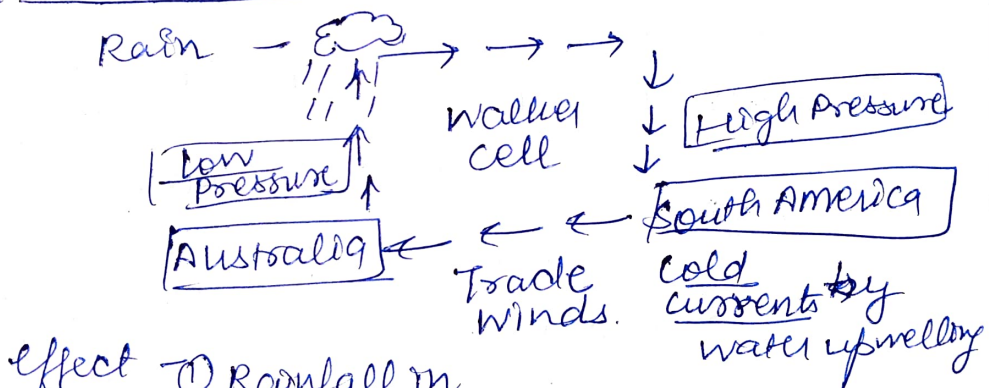 Rain -
Walker
cell
High Pressure
Low
Pressure
South America
Australia
Trade
winds.
cold
currents by
water upwelling
effect → ① Rainfall in